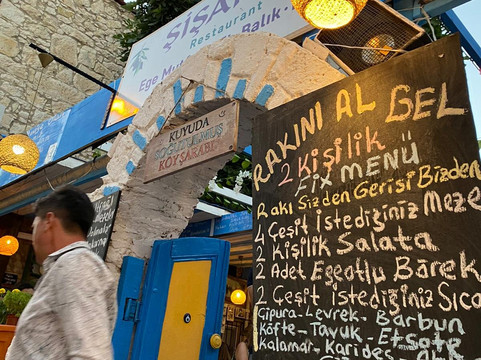 ŞİŞA
Restaurant
Ege Mu
Balık
KUYUDA
SOĞUTULMUŞ
KÖYŞARABI
RAKINI AL GEL
2 Kişilik
FİX MENÜ
Rakı Sizden Gerisi Bizden
4 Çeşit İstediğiniz Meze
2 Kişilik Salata
2 Adet Egeotlu Börek
2 Çeşit istediğiniz Sıca
Çipura-Levrek-Barbun
Köfte-Tavuk-Et Sote
Kalamar-Karides